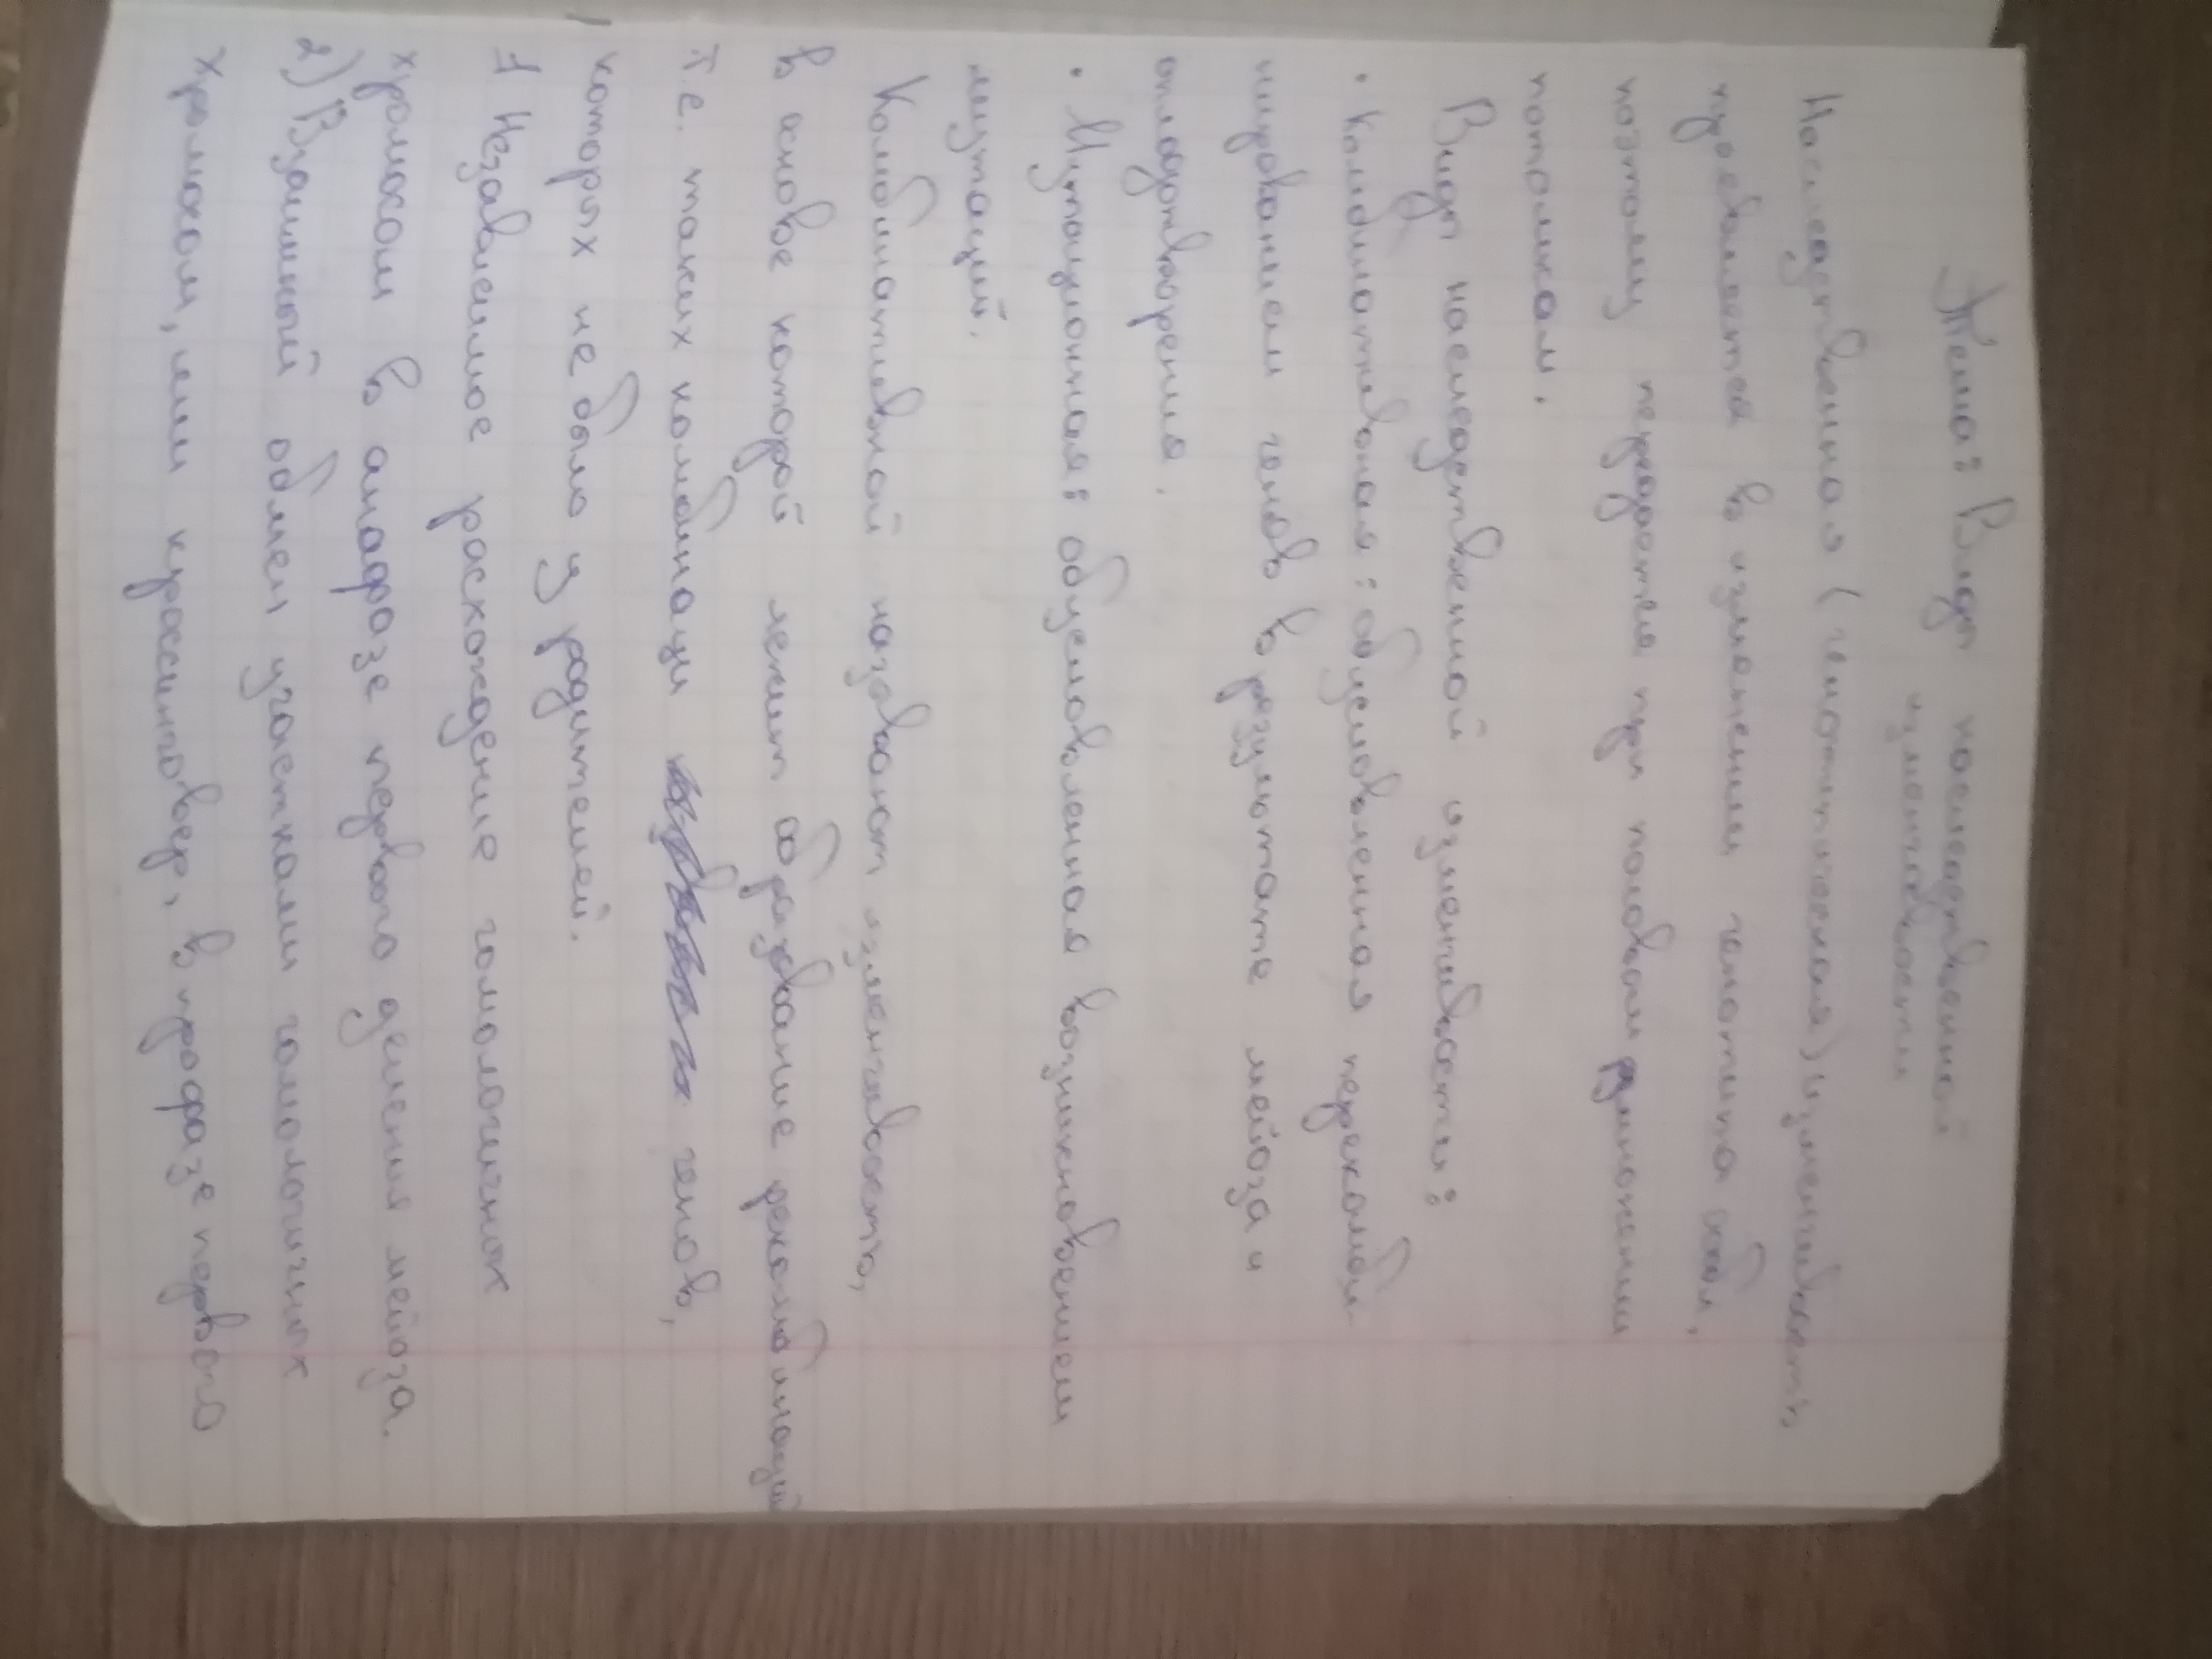 Тема: Виды наследственной
изменчивости
Наследственная (генотипическая) изменчивость
проявляется в изменении генотипа особи,
поэтому передается при половом размножении
потомкам.
Виды наследственной изменчивости:
• Комбинативная: обусловленная перекомби-
нированием генов в результате мейоза и
оплодотворения.
• Мутационная: обусловленная возникновением
мутаций.
Комбинативной называют изменчивость,
в основе которой лежит образование рекомбинаций
т.е. таких комбинаци генов,
которых не было у родителей.
1 Независимое расхождение гомологичных
хромосом в анафазе первого деления мейоза.
2) Взаимный обмен участками гомологичных
хромосом, или кроссинговер, в профазе первого